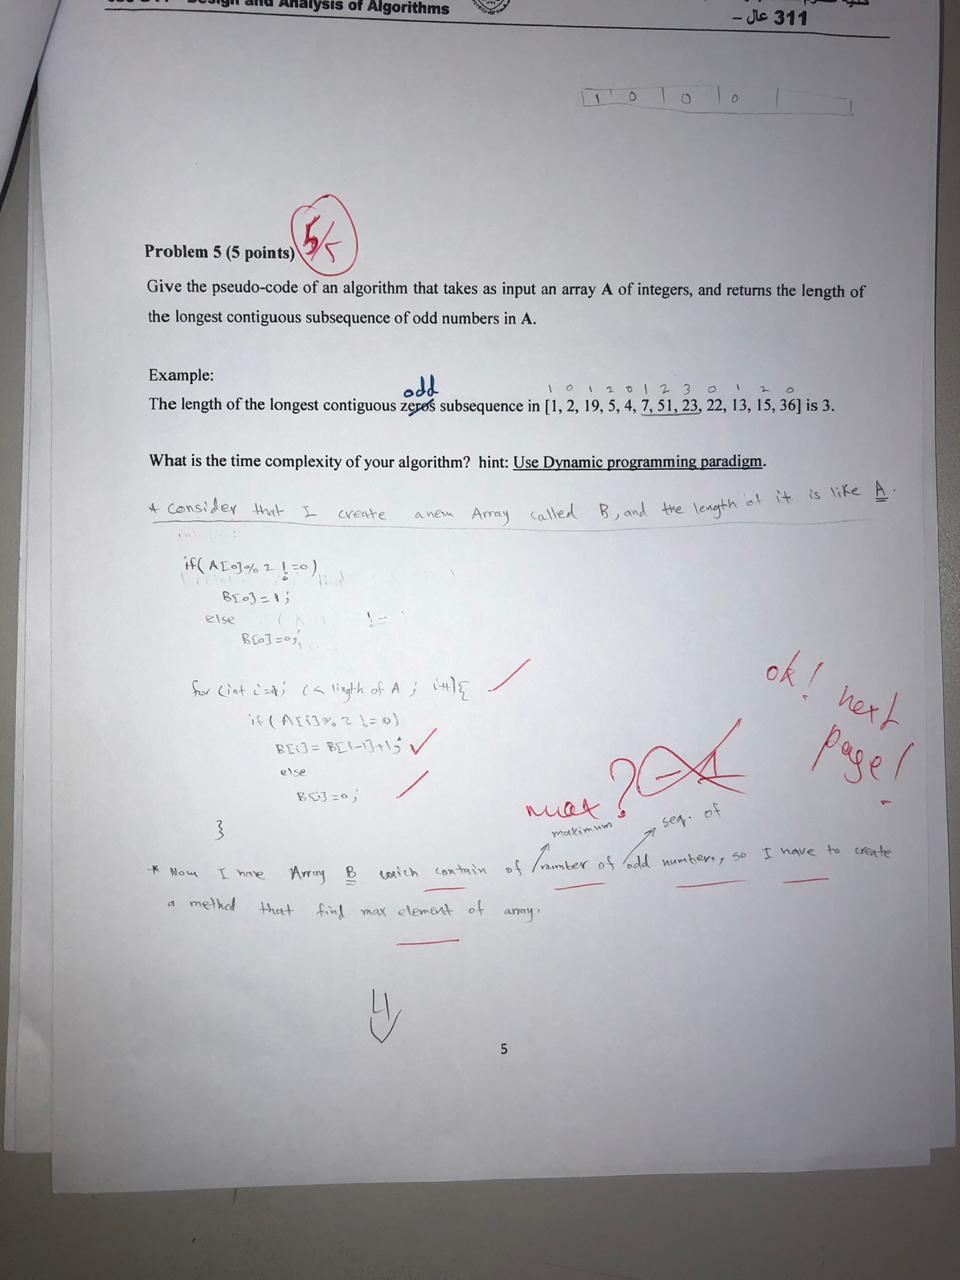 Design and Analysis of Algorithms
311 عال –
1 0 0 0
5/5
Problem 5 (5 points)
Give the pseudo-code of an algorithm that takes as input an array A of integers, and returns the length of
the longest contiguous subsequence of odd numbers in A.
Example:
odd
1 0 1 2 0 1 2 3 0 1 2 0
The length of the longest contiguous zeros subsequence in [1, 2, 19, 5, 4, 7, 51, 23, 22, 13, 15, 36] is 3.
What is the time complexity of your algorithm? hint: Use Dynamic programming paradigm.
* consider that I create a new Array called B, and the length of it is like A.
if( A[0]%2 !=0)
B[0]=1;
else
!=
B[0]=0;
for (int i=1; i< length of A ; i++){
if( A[i]%2 != 0)
B[i]= B[i-1]+1;
else
B[i]=0;
}
ok! next
page!
max?
maximum seq. of
* Now I have Array B which contain of number of odd numbers, so I have to create
a method that find max element of array.
5